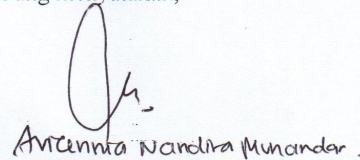 Avicennia Nandira Munandar